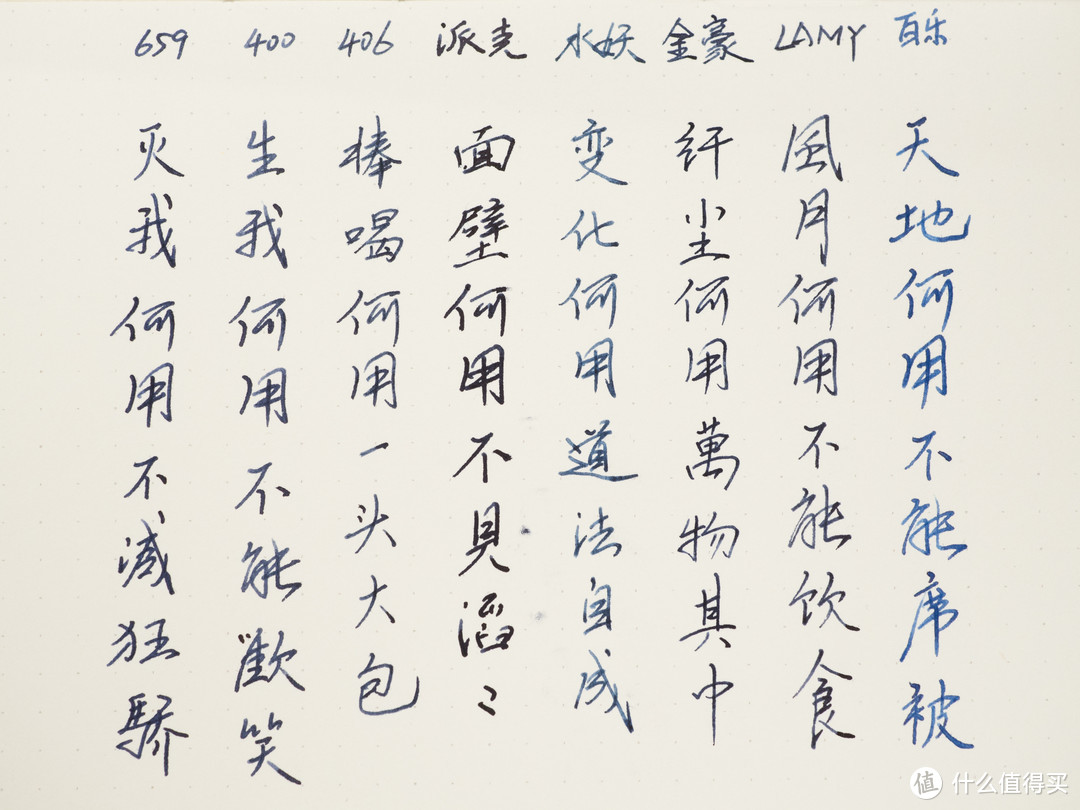 百乐
天地何用不能席被
LAMY
風月何用不能饮食
金豪
纤尘何用萬物其中
水妖
变化何用道法自成
派克
面壁何用不見滔〻
406
棒喝何用一头大包
400
生我何用不能歡笑
659
灭我何用不减狂驕
值 什么值得买